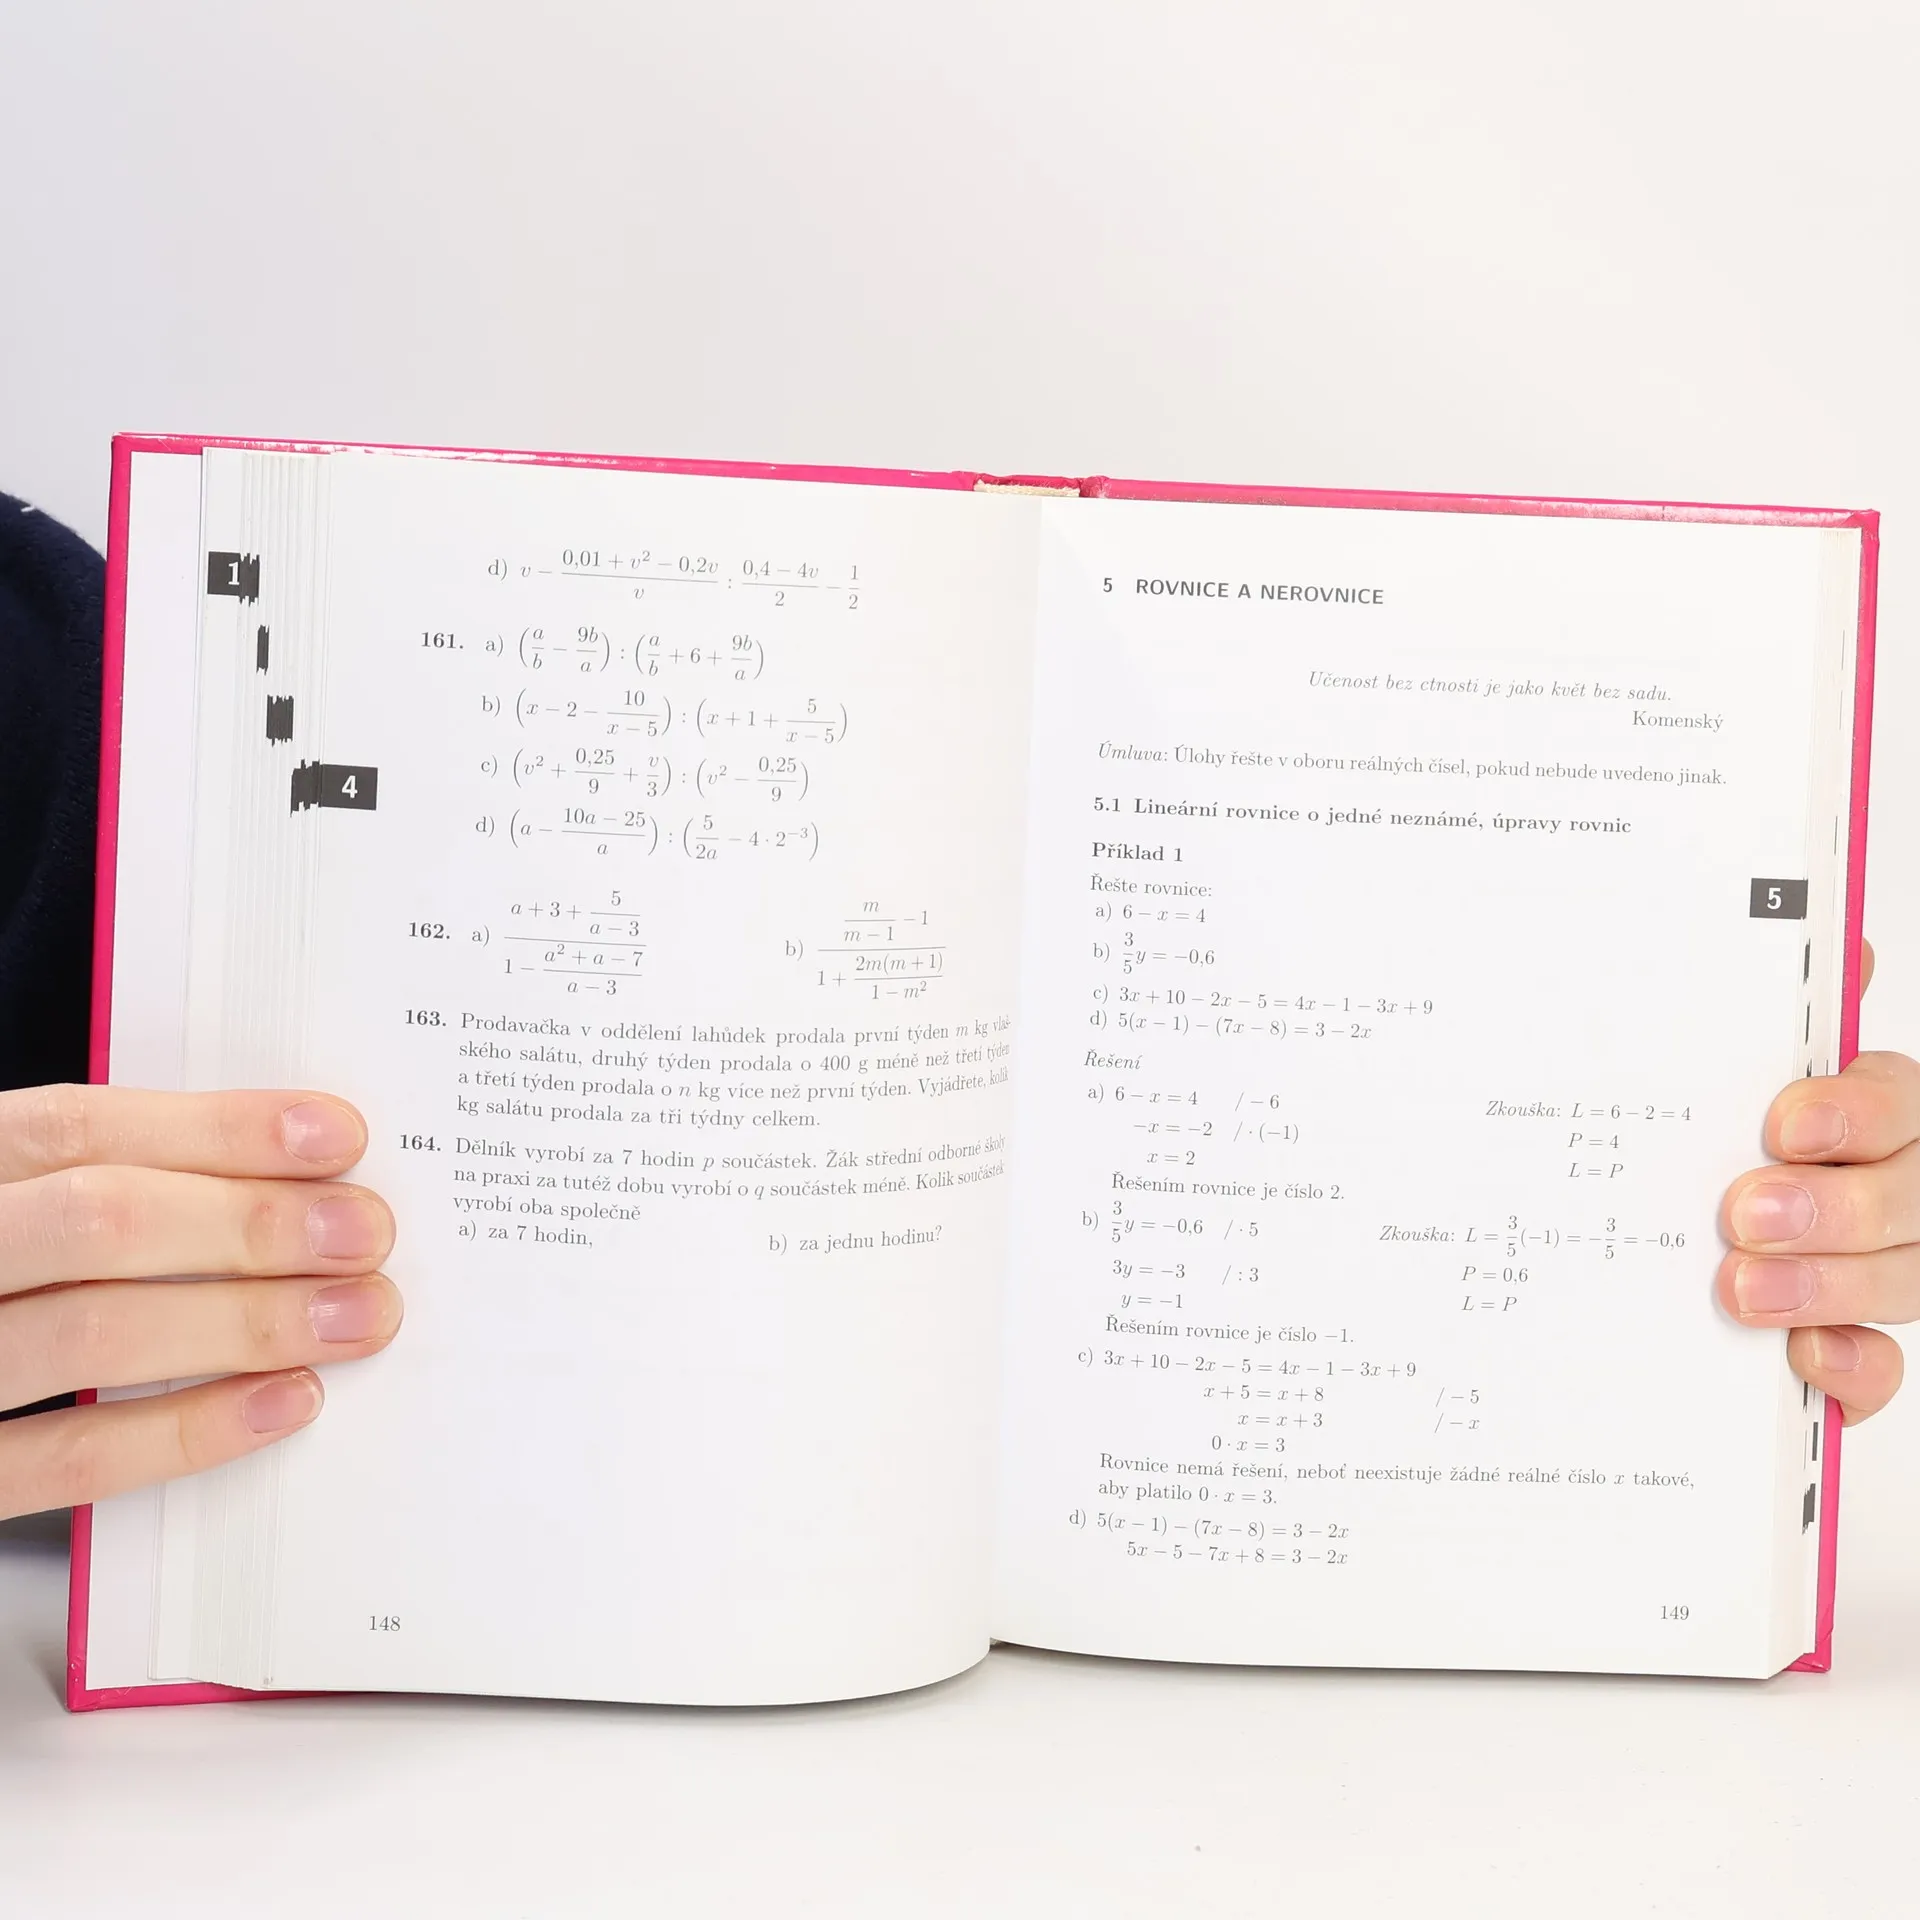 1
4
d) v − (0,01 + v² − 0,2v)/v : (0,4 − 4v)/2 − 1/2
161. a) (a/b − 9b/a) : (a/b + 6 + 9b/a)
b) (x − 2 − 10/(x − 5)) : (x + 1 + 5/(x − 5))
c) (v² + 0,25/9 + v/3) : (v² − 0,25/9)
d) (a − (10a − 25)/a) : (5/2a − 4 · 2⁻³)
162. a) (a + 3 + 5/(a − 3))/(1 − (a² + a − 7)/(a − 3)) b) (m/(m − 1) − 1)/(1 + 2m(m + 1)/(1 − m²))
163. Prodavačka v oddělení lahůdek prodala první týden m kg vlaš-
ského salátu, druhý týden prodala o 400 g méně než třetí týden
a třetí týden prodala o n kg více než první týden. Vyjádřete, kolik
kg salátu prodala za tři týdny celkem.
164. Dělník vyrobí za 7 hodin p součástek. Žák střední odborné školy
na praxi za tutéž dobu vyrobí o q součástek méně. Kolik součástek
vyrobí oba společně
a) za 7 hodin, b) za jednu hodinu?
148
5 ROVNICE A NEROVNICE
Učenost bez ctnosti je jako květ bez sadu.
Komenský
Úmluva: Úlohy řešte v oboru reálných čísel, pokud nebude uvedeno jinak.
5.1 Lineární rovnice o jedné neznámé, úpravy rovnic
Příklad 1
Řešte rovnice:
a) 6 − x = 4
b) 3/5 y = −0,6
c) 3x + 10 − 2x − 5 = 4x − 1 − 3x + 9
d) 5(x − 1) − (7x − 8) = 3 − 2x
5
Řešení
a) 6 − x = 4 / − 6 Zkouška: L = 6 − 2 = 4
−x = −2 / · (−1) P = 4
x = 2 L = P
Řešením rovnice je číslo 2.
b) 3/5 y = −0,6 / · 5 Zkouška: L = 3/5 (−1) = −3/5 = −0,6
3y = −3 / : 3 P = 0,6
y = −1 L = P
Řešením rovnice je číslo −1.
c) 3x + 10 − 2x − 5 = 4x − 1 − 3x + 9
x + 5 = x + 8 / − 5
x = x + 3 / − x
0 · x = 3
Rovnice nemá řešení, neboť neexistuje žádné reálné číslo x takové,
aby platilo 0 · x = 3.
d) 5(x − 1) − (7x − 8) = 3 − 2x
5x − 5 − 7x + 8 = 3 − 2x
149